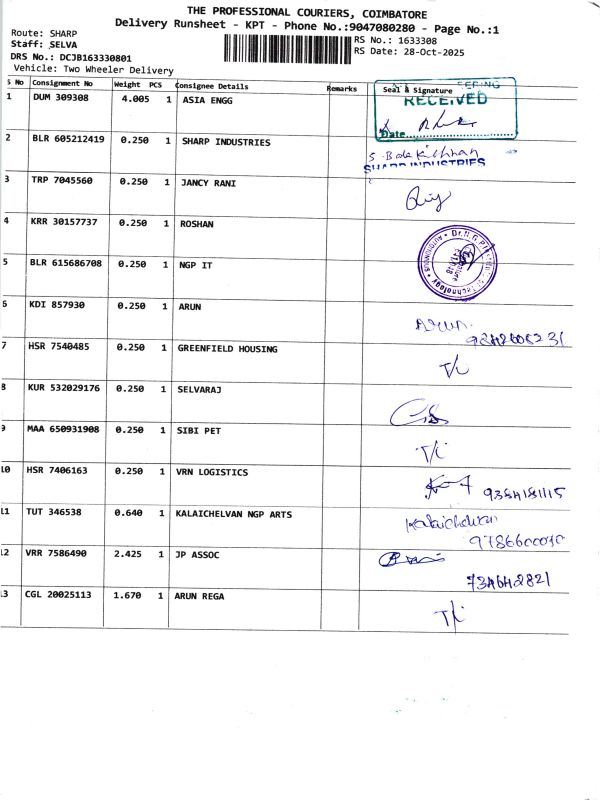 THE PROFESSIONAL COURIERS, COIMBATORE
Delivery Runsheet - KPT - Phone No.:9047080280 - Page No.:1
Route: SHARP
RS No.: 1633308
Staff: SELVA
RS Date: 28-Oct-2025
DRS No.: DCJB163330801
Vehicle: Two Wheeler Delivery
S No Consignment No Weight PCS Consignee Details Remarks Seal & Signature
1 DUM 309308 4.005 1 ASIA ENGG
RECEIVED
Date
2 BLR 605212419 0.250 1 SHARP INDUSTRIES
S. Balakrishnan
SHARP INDUSTRIES
3 TRP 7045560 0.250 1 JANCY RANI
4 KRR 30157737 0.250 1 ROSHAN
5 BLR 615686708 0.250 1 NGP IT
6 KDI 857930 0.250 1 ARUN
Arun
7 HSR 7540485 0.250 1 GREENFIELD HOUSING
T/i
8 KUR 532029176 0.250 1 SELVARAJ
9 MAA 650931908 0.250 1 SIBI PET
T/i
10 HSR 7406163 0.250 1 VRN LOGISTICS
11 TUT 346538 0.640 1 KALAICHELVAN NGP ARTS
Kalaichelvan
12 VRR 7586490 2.425 1 JP ASSOC
13 CGL 20025113 1.670 1 ARUN REGA
T/i